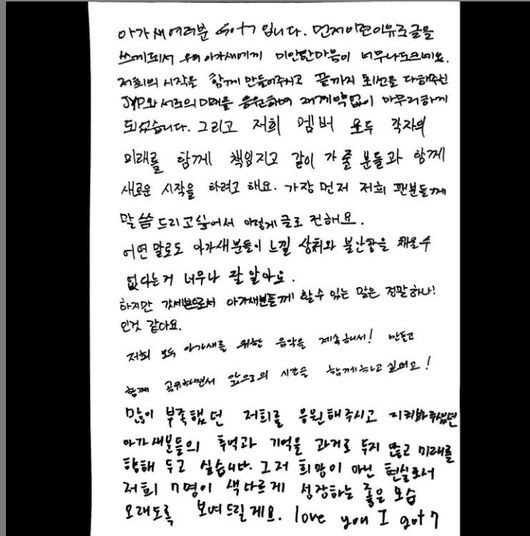 아가새여러분 GOT7 입니다. 먼저이런이유로글을
쓰게되서 우리 아가새에게 미안한마음이 너무나도크네요.
저희의 시작을 함께 만들어주시고 끝까지 최선을 다해주신
JYP와 서로의 미래를 응원하며 재계약없이 마무리하게
되었습니다. 그리고 저희 멤버 모두 각자의
미래를 함께 책임지고 같이 가줄 분들과 함께
새로운 시작을 하려고 해요. 가장 먼저 저희 팬분들께
말씀드리고싶어서 이렇게 글로 전해요.
어떤 말로도 아가새분들이 느낄 상처와 불안감을 채울수
없다는거 너무나 잘 알아요.
하지만 갓세븐으로서 아가새분들께 할수 있는 말은 정말하나!
인것 같아요.
저희 모두 아가새를 위한 음악을 계속해서! 만들고
함께 공유하면서 앞으로의 시간들 함께하고 싶어요!
많이 부족했던 저희를 응원해주시고 지켜봐주셨던
아가새분들의 추억과 기억을 과거로 두지 않고 미래를
향해 두고 싶습니다. 그저 희망이 아닌 현실로서
저희 7명이 색다르게 성장하는 좋은 모습
오래도록 보여드릴게요. love you I got7